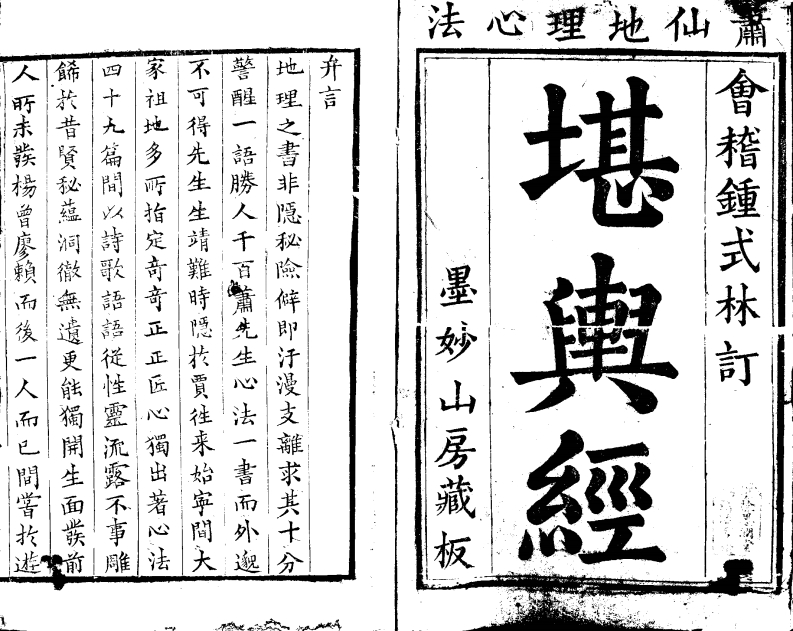 蕭仙地理心法
會稽鍾式林訂
堪輿經
墨妙山房藏板
弁言
地理之書非隱秘險僻即汗漫支離求其十分
警醒一語勝人千百蕭先生心法一書而外邈
不可得先生生靖難時隱於賈往来始寧間大
家祖地多所指定奇奇正正匠心獨出著心法
四十九篇間以詩歌語語從性靈流露不事雕
餙於昔賢秘蘊洞徹無遺更能獨開生面發前
人所未發楊曾廖賴而後一人而已間嘗於遊